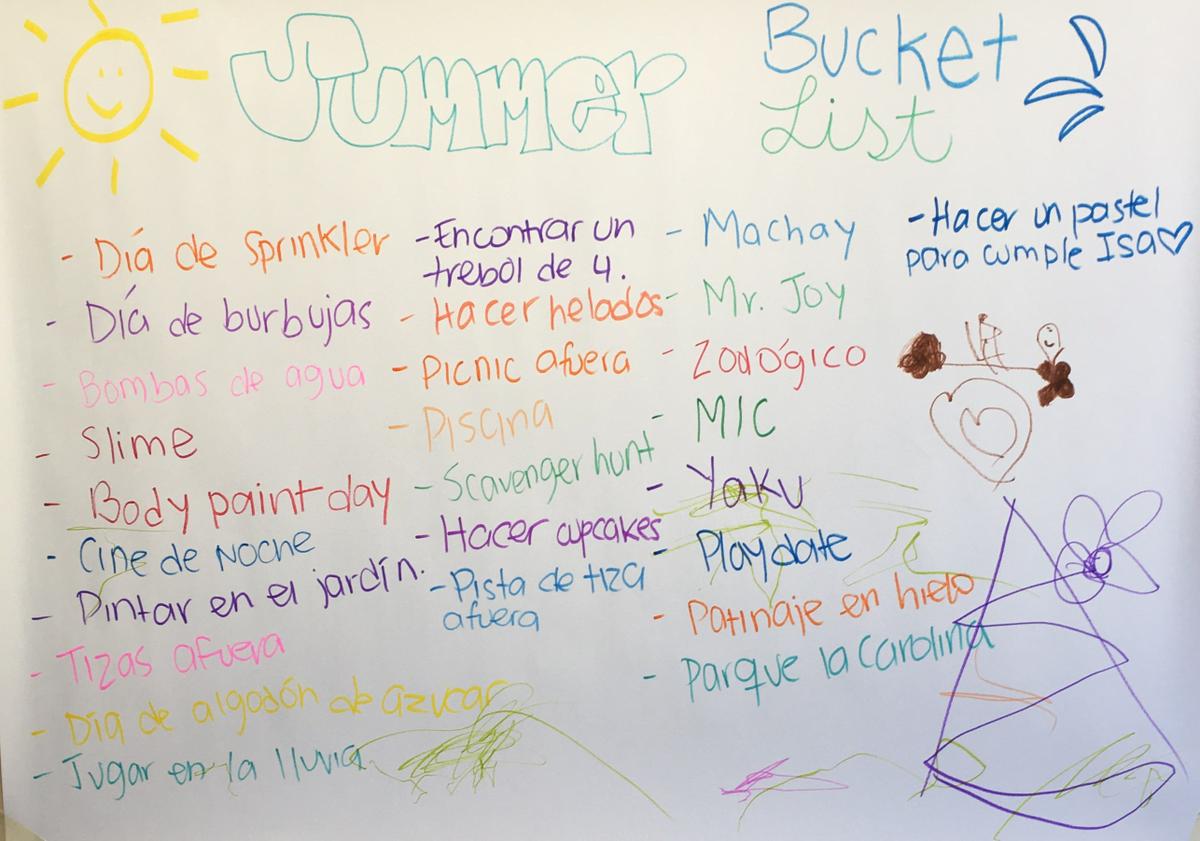 Summer Bucket
List
- Día de Sprinkler
- Día de burbujas
- Bombas de agua
- Slime
- Body paint day
- Cine de Noche
- Pintar en el jardín.
- Tizas afuera
- Día de algodón de azucar
- Jugar en la lluvia
- Encontrar un
trebol de 4.
- Hacer helados
- Picnic afuera
- Piscina
- Scavenger hunt
- Hacer cupcakes
- Pista de tiza
afuera
- Machay
- Mr. Joy
- Zoológico
- MIC
- Yaku
- Playdate
- Patinaje en hielo
- Parque la Carolina
- Hacer un pastel
para cumple Isa♡